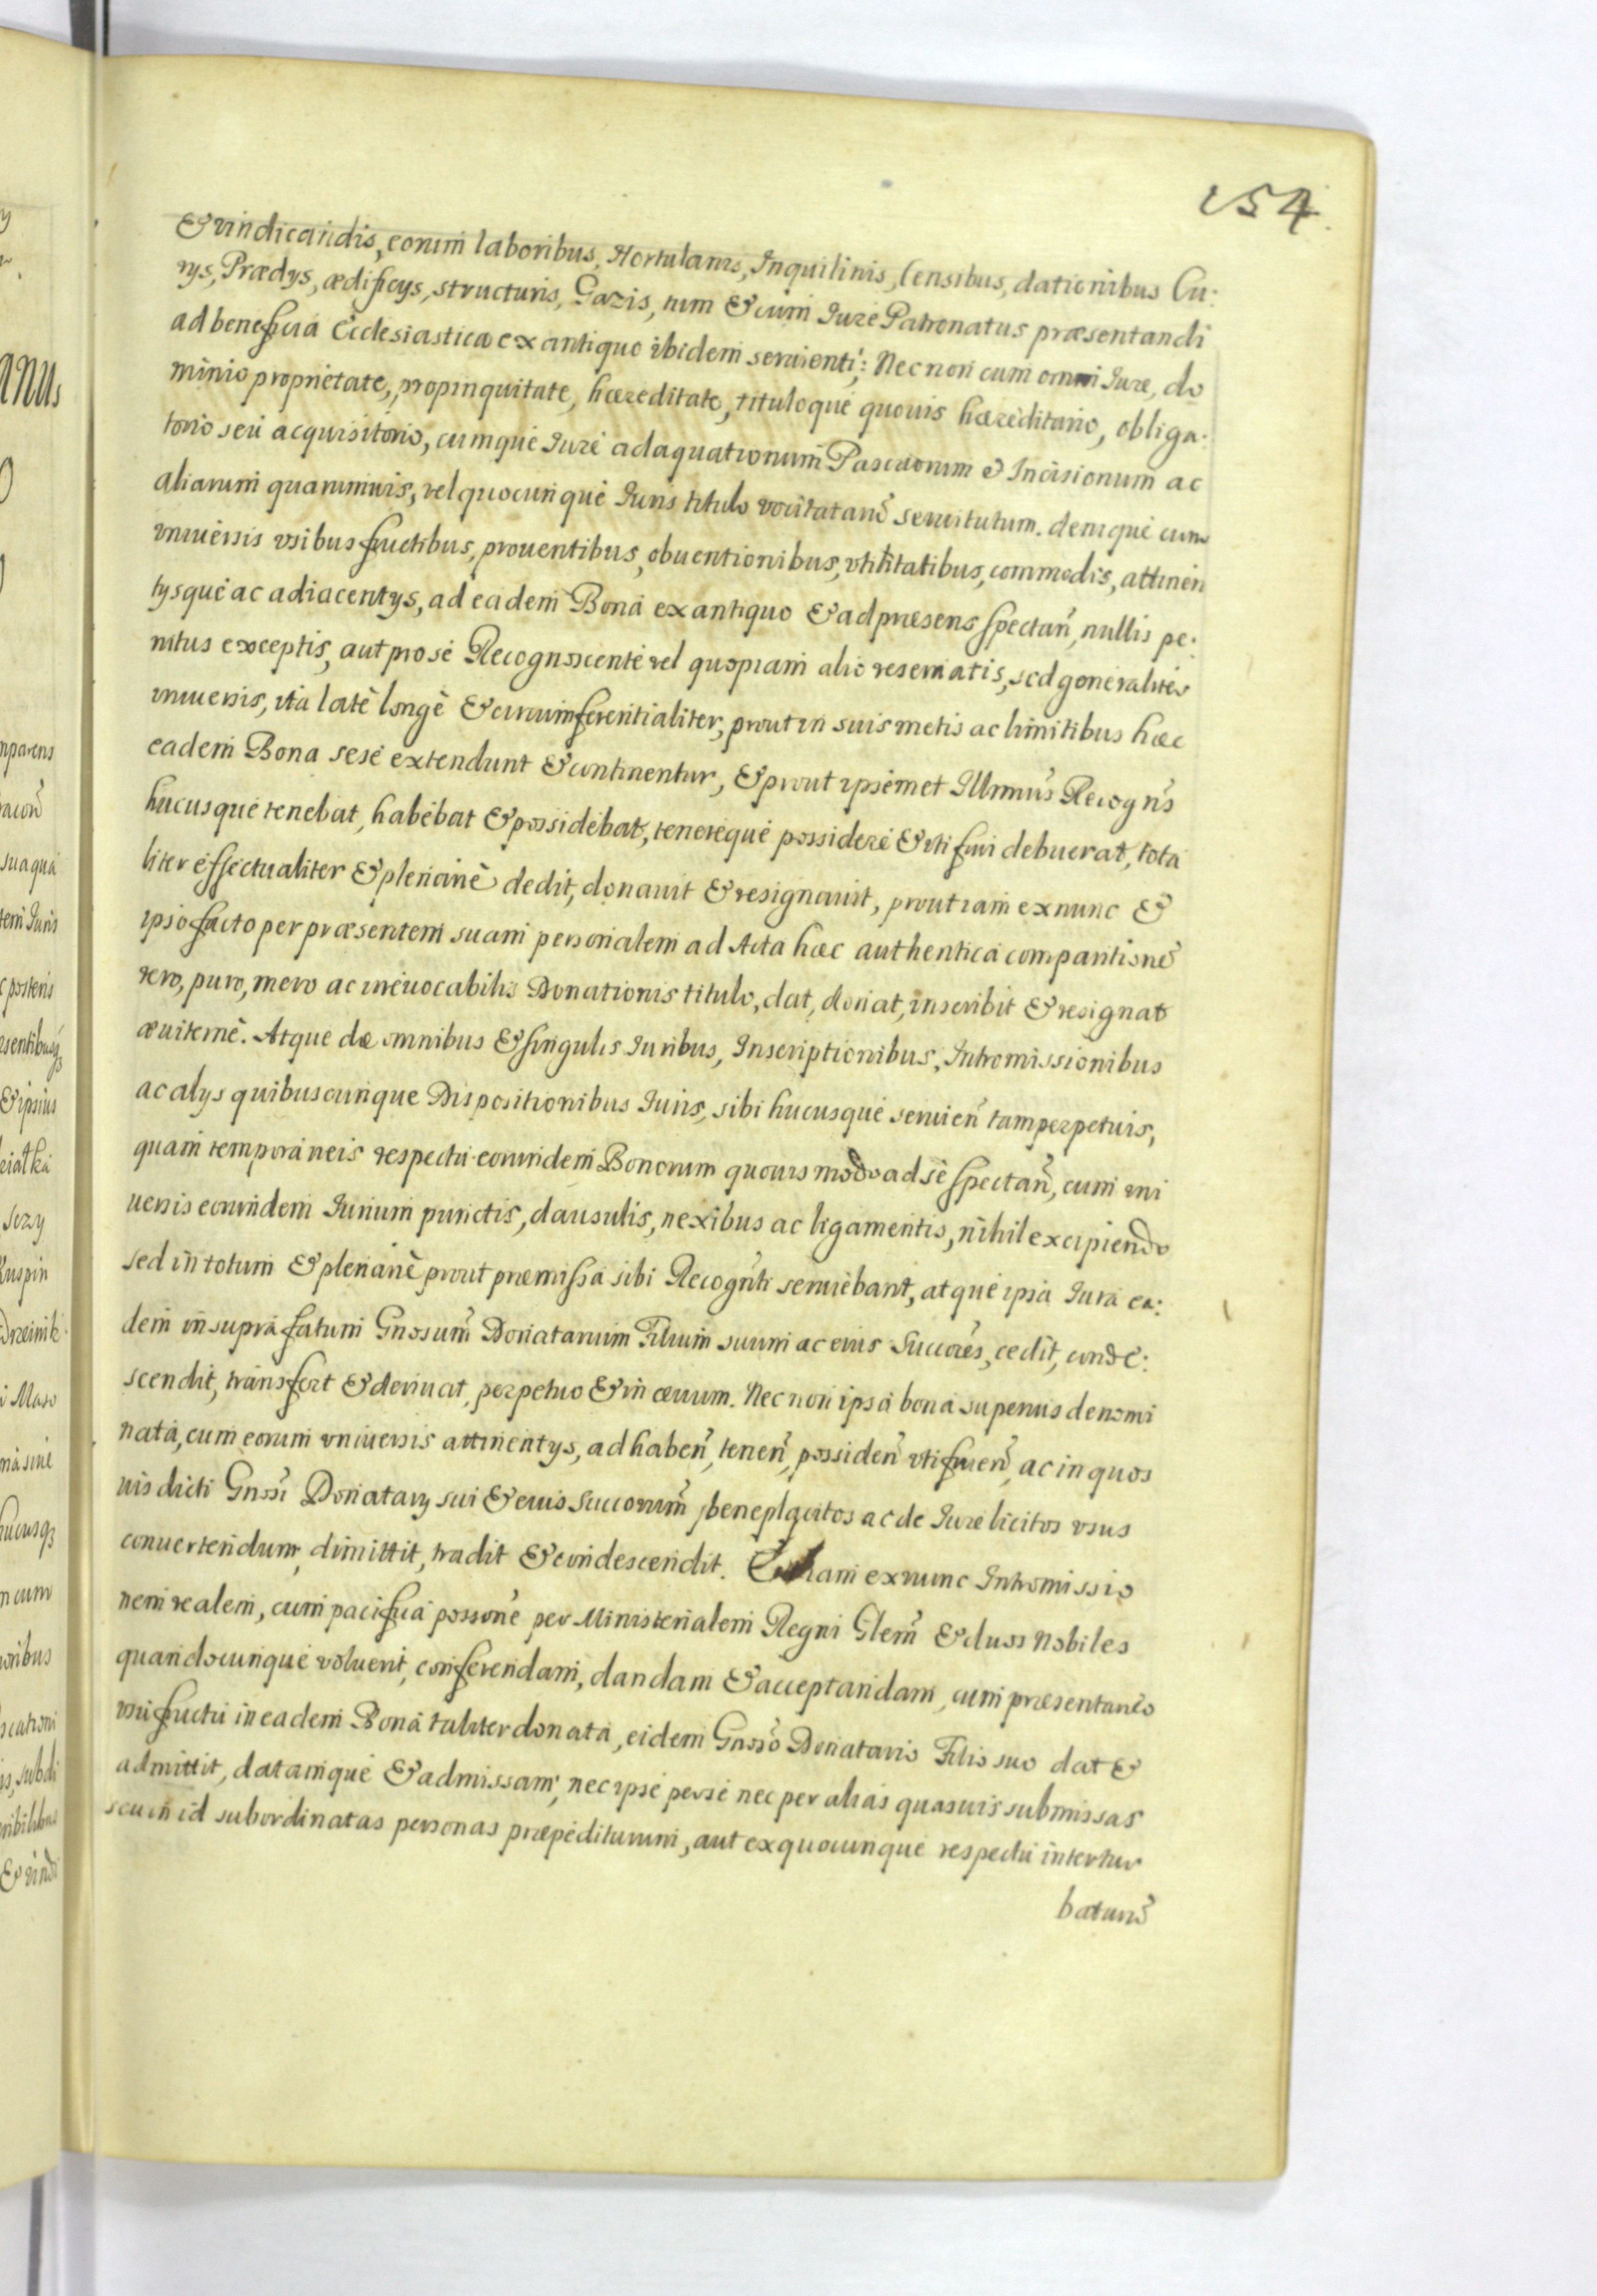 154
& vindicandis, eorum laboribus, Hortulanis, Inquilinis, Censibus, dationibus Cu:
rys, Prædys, ædificys, structuris, Gazis, tum & cum Iure Patronatus præsentandi
ad beneficia Ecclesiastica ex antiquo ibidem seruienti: Nec non cum omni Iure, do
minio proprietate, propinquitate, hæreditate, tituloque quouis hæreditario, obliga:
torio seu acquisitorio, cumque Iure adaquationum Pascuorum & Incisionum ac
aliarum quarumuis, vel quocunque Iuris titulo vocitatarũ seruitutum. denique cum
vniuersis vsibus fructibus, prouentibus, obuentionibus, vtilitatibus, commodis, attinen
tysque ac adiacentys, ad eadem Bona ex antiquo & ad præsens spectañ, nullis pe:
nitus exceptis, aut pro se Recognoscente vel quopiam alio reseruatis, sed generaliter
vniuersis, ita latè longè & circumferentialiter, prout in suis metis ac limitibus hæc
eadem Bona sese extendunt & continentur, & prout ipsemet Illrmus Recogñs
hucusque tenebat, habebat & possidebat, tenereque possidere & vti frui debuerat, tota
liter effectualiter & plenariè dedit, donauit & resignauit, prout iam ex nunc &
ipso facto per præsentem suam personalem ad Acta hæc authentica comparitionẽ
vero, puro, mero ac irreuocabilis Donationis titulo, dat, donat, inscribit & resignat
æuiternè. Atque de omnibus & singulis Iuribus, Inscriptionibus, Intromissionibus
ac alys quibuscunque Dispositionibus Iuris, sibi hucusque seruieñ tam perpetuis,
quam temporaneis respectu eorundem Bonorum quouis modo ad se spectañ, cum vni
uersis eorundem Iurium punctis, clausulis, nexibus ac ligamentis, nihil excipiendo
sed in totum & plenariè prout præmissa sibi Recogñti seruiebant, atque ipsa Iura ea:
dem in supra fatum Gnosum̃ Donatarium Filium suum ac eius Succorẽs, cedit, conde:
scendit, transfert & deriuat, perpetuo & in æuum. Nec non ipsa bona superius denomi
nata, cum eorum vniuersis attinentys, ad habeñ, teneñ, possideñ vti frueñ, ac in quos
uis dicti Gnosi Donatary sui & eius Succorum̃ beneplacitos ac de Iure licitos vsus
conuertendum, dimittit, tradit & condescendit. iam ex nunc Intromissio
nem realem, cum pacifica possonẽ per Ministerialem Regni Glem̃ & duos Nobiles
quandocunque voluerit, conferendam, dandam & acceptandam, cum præsentaneo
vsufructu in eadem Bona taliter donata, eidem Gnoso Donatario Filio suo dat &
admittit, datamque & admissam, nec ipse per se nec per alias quasuis submissas
seu in id subordinatas personas præpediturum, aut ex quocunque respectu intertur
baturũ